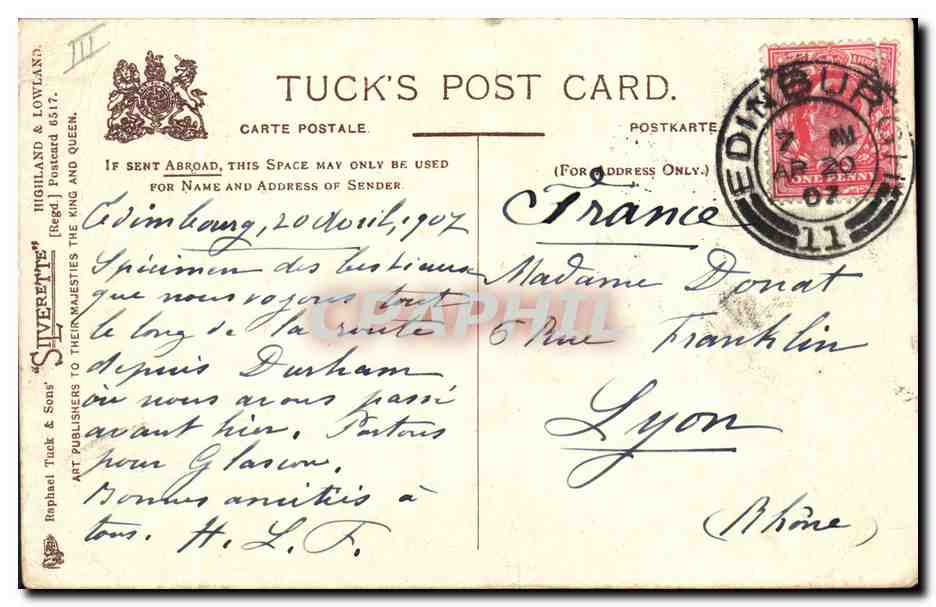 III
TUCK'S POST CARD.
CARTE POSTALE.
POSTKARTE
IF SENT ABROAD, THIS SPACE MAY ONLY BE USED
FOR NAME AND ADDRESS OF SENDER.
(FOR ADDRESS ONLY.)
EDINBURGH
7 AM
AP 20
07
11
ONE PENNY
Edimbourg, 20 Avril, 1907
Spécimen des bestiaux
que nous voyons tout
le long de la route
depuis Durham
où nous avons passé
avant hier. Partons
pour Glascow.
Bonnes amitiés à
tous. H. L. F.
France
Madame Donat
5 Rue Franklin
Lyon
(Rhône)
CPAPHIL
Raphael Tuck & Sons' "SILVERETTE" HIGHLAND & LOWLAND.
[Regd.] Postcard 6517.
ART PUBLISHERS TO THEIR MAJESTIES THE KING AND QUEEN.